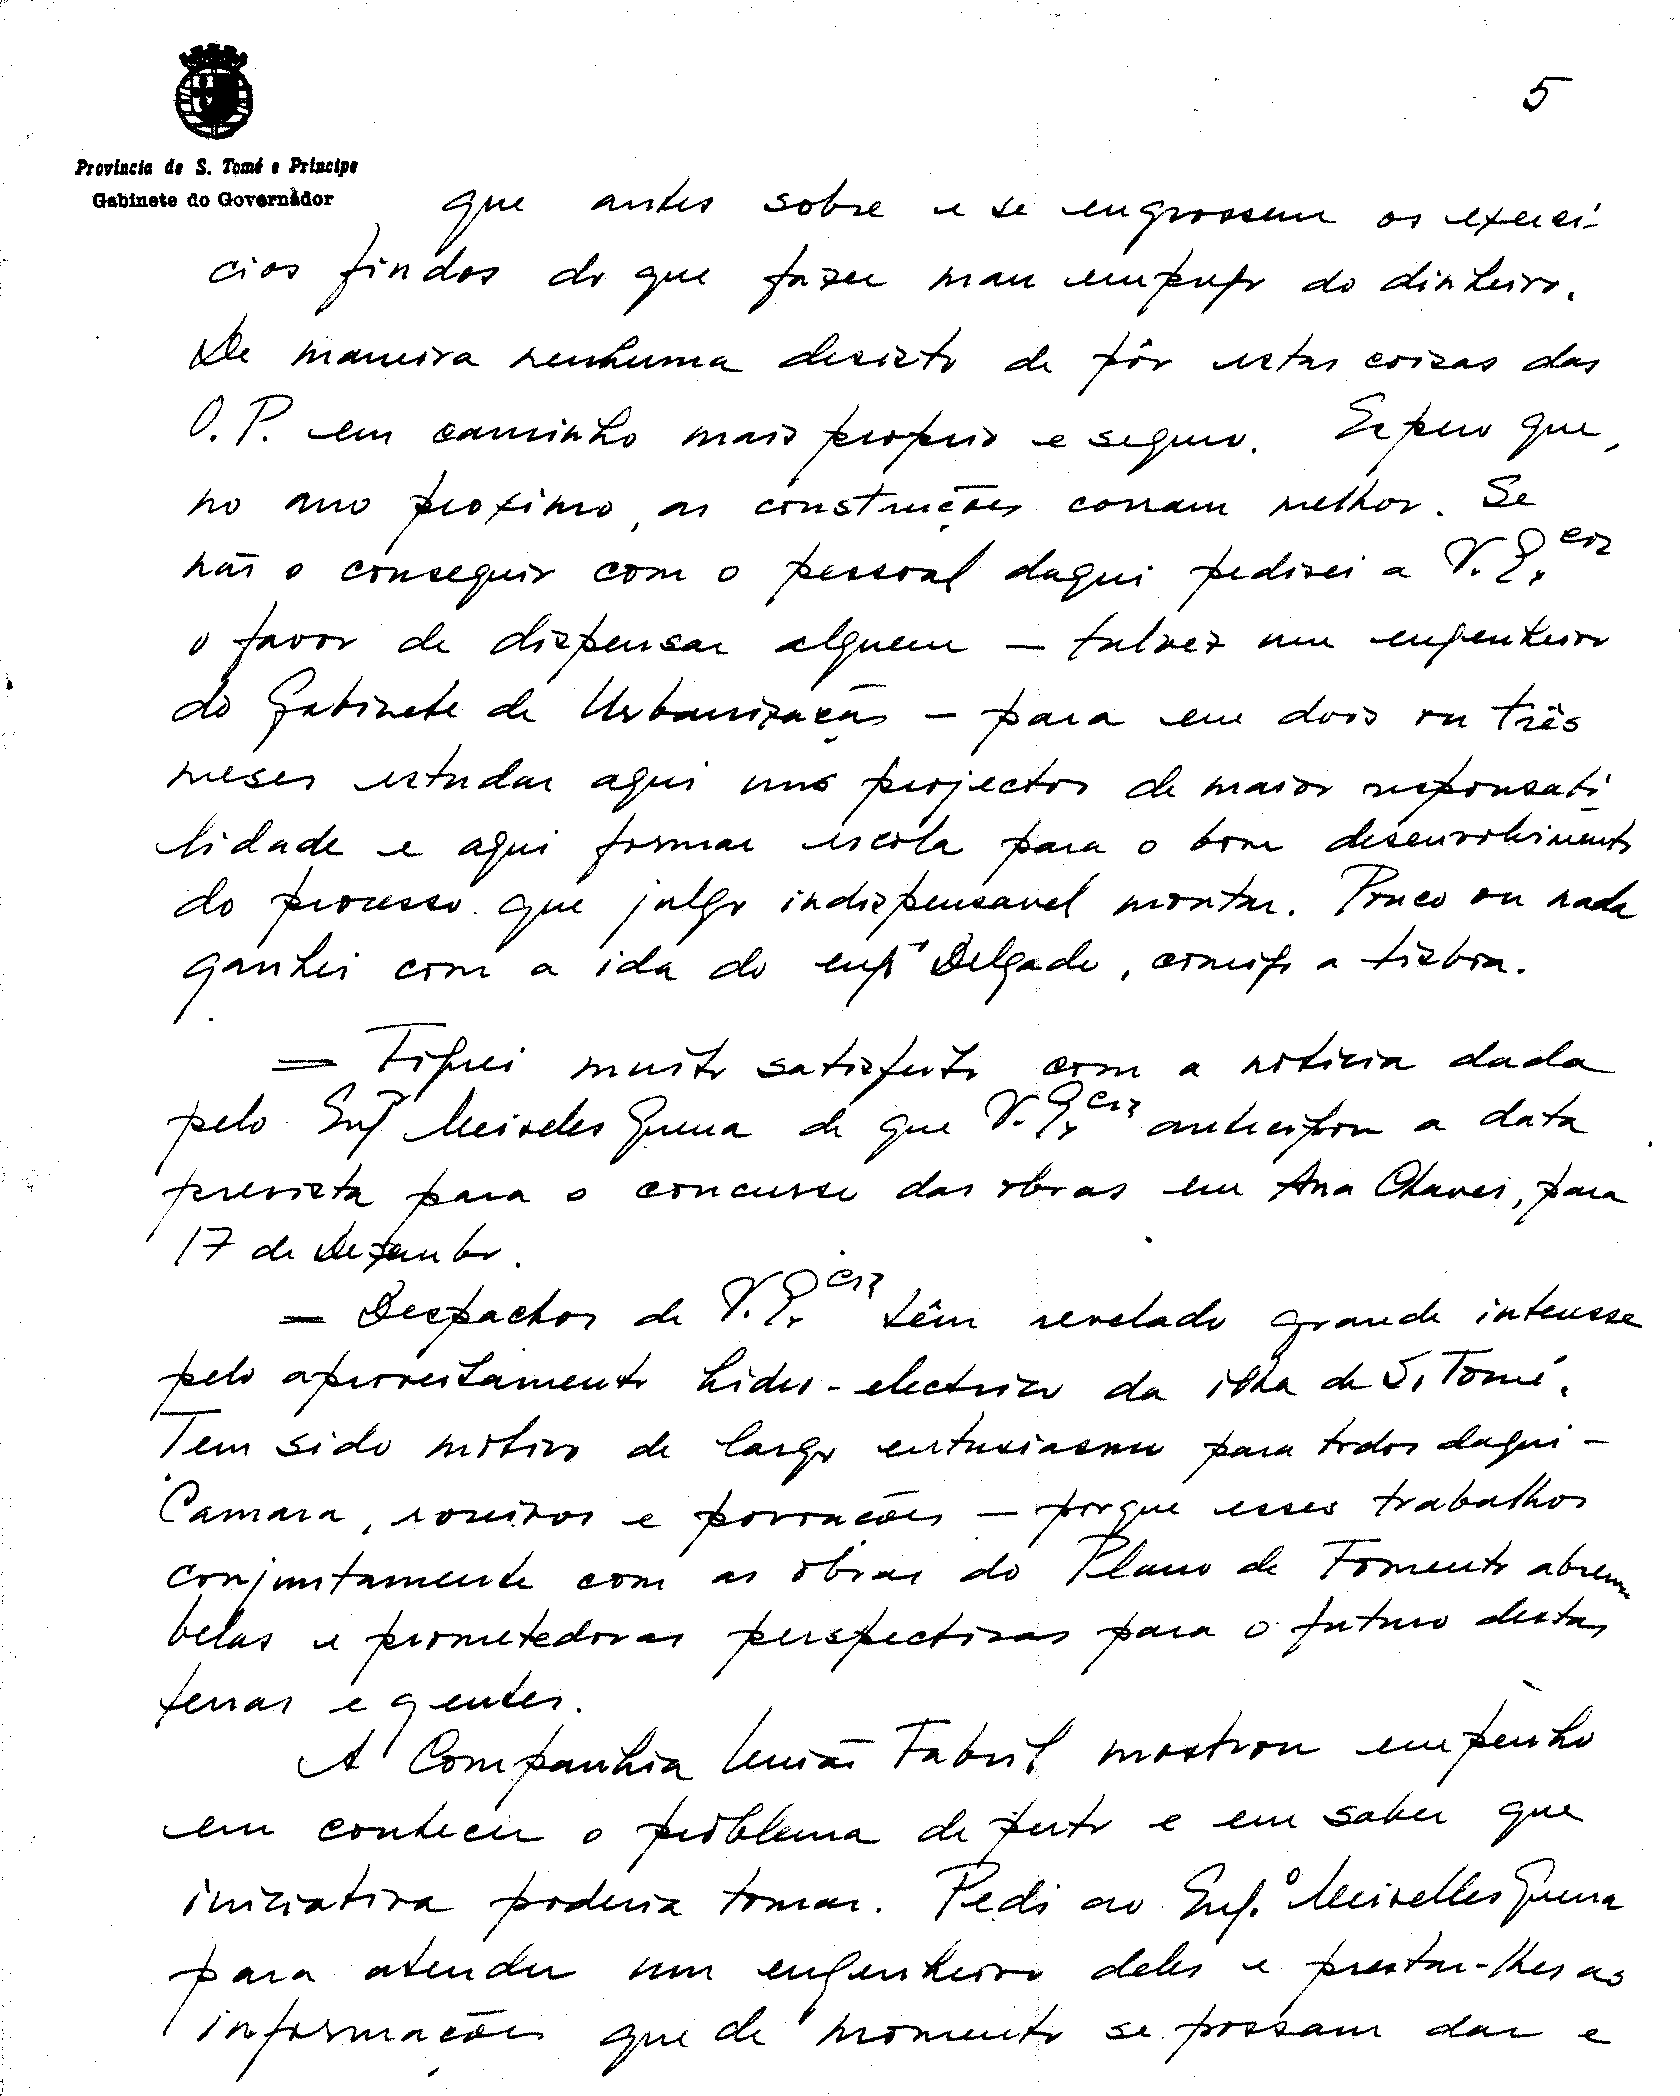 5
Provincia de S. Tomé e Príncipe
Gabinete do Governador
que antes sobre e se engrossem os exerci-
cios findos do que fazer mau emprego do dinheiro.
De maneira nenhuma desisto de pôr estas coisas das
O.P. em caminho mais proprio e seguro. Espero que,
no ano proximo, as construções corram melhor. Se
não o conseguir com o pessoal daqui pedirei a V. Ex.cia
o favor de dispensar alguem – talvez um engenheiro
do Gabinete de Urbanização – para em dois ou três
meses estudar aqui uns projectos de maior responsabi-
lidade e aqui formar escola para o bom desenvolvimento
do processo que julgo indispensavel montar. Pouco ou nada
ganhei com a ida do engº Delgado, comigo a Lisboa.
= Fiquei muito satisfeito com a noticia dada
pelo Engº Meireles Guerra de que V. Ex.cia antecipou a data
prevista para o concurso das obras em Ana Chaves, para
17 de Dezembro.
= Despachos de V. Ex.cia têm revelado grande interesse
pelo aproveitamento hidro-electrico da ilha de S. Tomé.
Tem sido motivo de largo entusiasmo para todos daqui –
Camara, roceiros e povoações – porque esses trabalhos
conjuntamente com as obras do Plano de Fomento abrem
belas e prometedoras perspectivas para o futuro destas
terras e gentes.
A Companhia União Fabril mostrou empenho
em conhecer o problema de perto e em saber que
iniciativa poderia tomar. Pedi ao Eng.º Meirelles Guerra
para atender um engenheiro deles e prestar-lhes as
informações que de momento se possam dar e